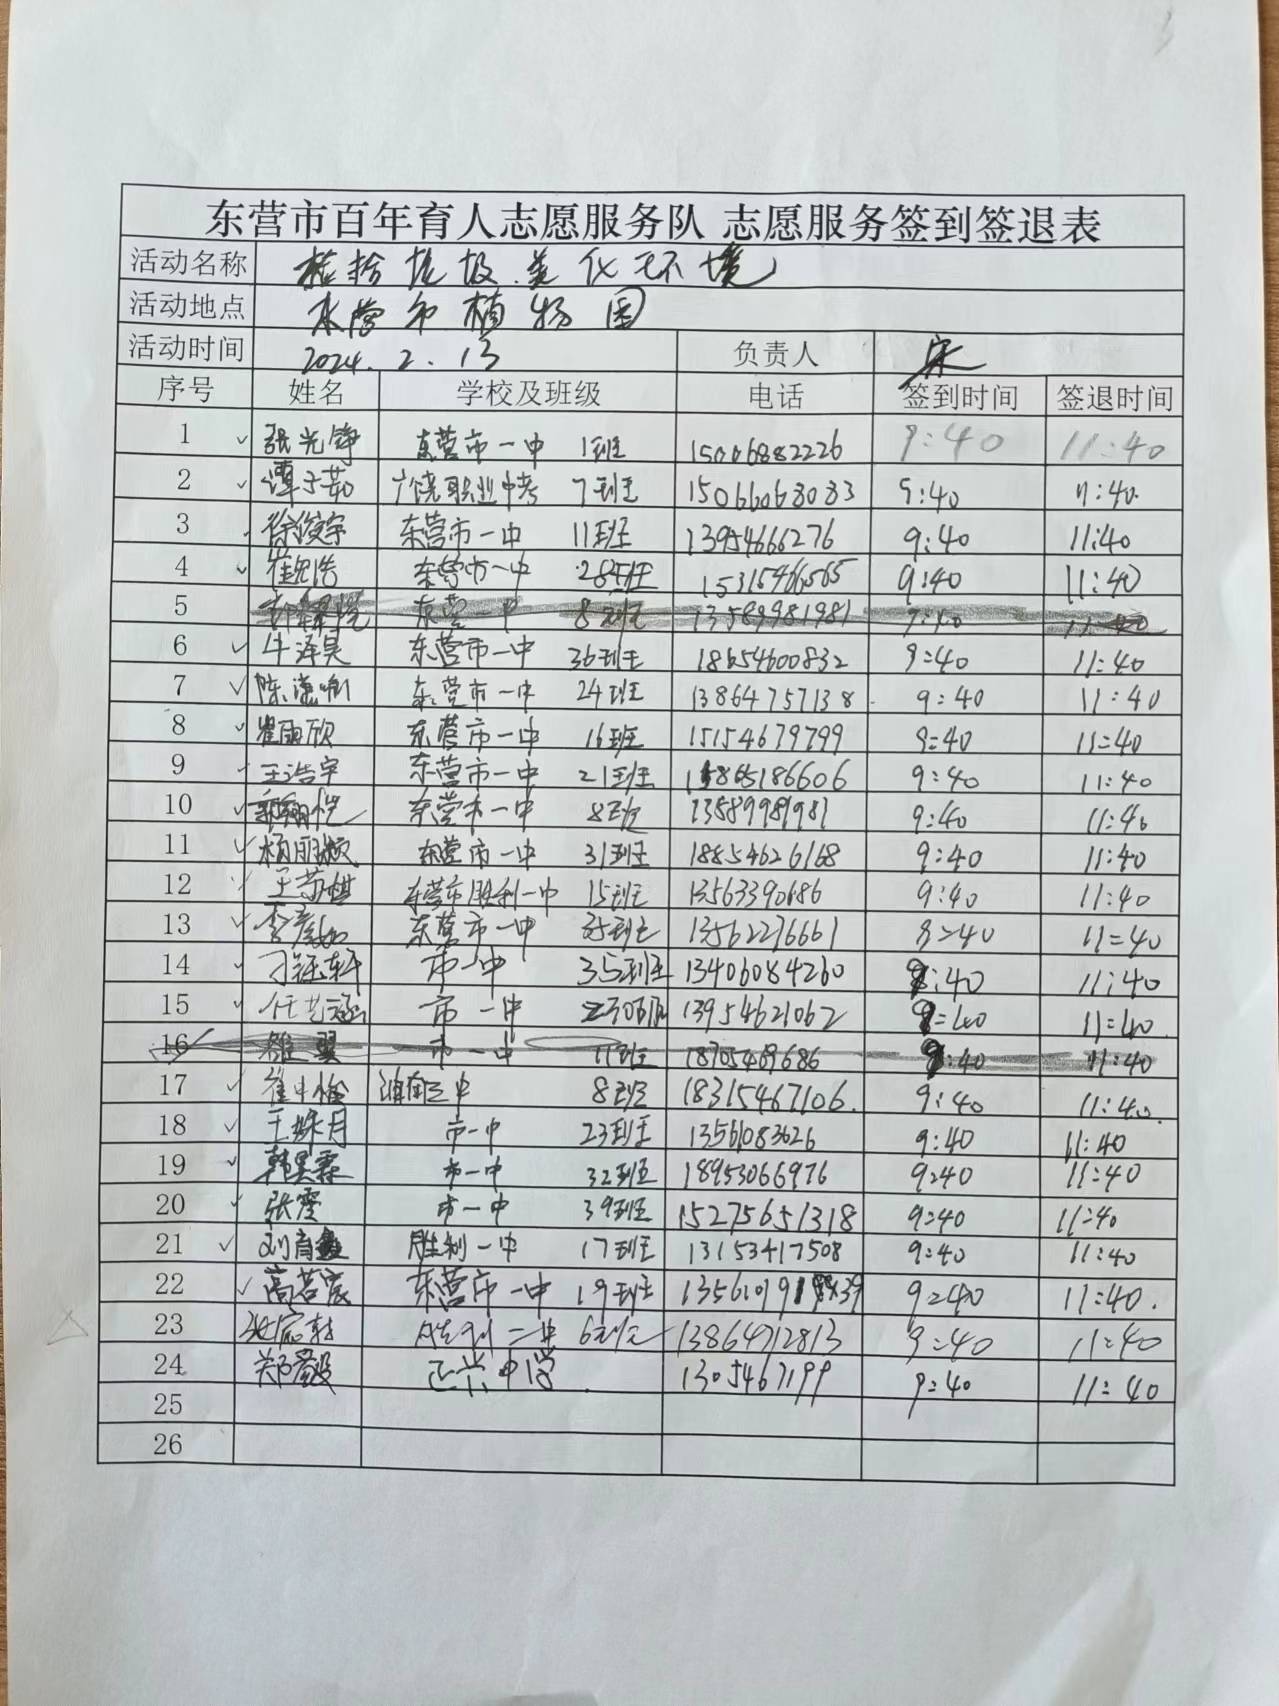 东营市百年育人志愿服务队 志愿服务签到签退表
活动名称 捡拾垃圾.美化环境
活动地点 东营市植物园
活动时间 2024.2.13 负责人 宋
序号 姓名 学校及班级 电话 签到时间 签退时间
1 张光铮 东营市一中 1班 15006882226 9:40 11:40
2 谭子茹 广饶职业中专 7班 15066068083 9:40 11:40
3 徐俊宇 东营市一中 11班 13954666276 9:40 11:40
4 东营市一中 28班 15315466565 9:40 11:40
5 东营一中 8班 13589981981 9:40 11:40
6 牛泽昊 东营市一中 36班 18654600832 9:40 11:40
7 陈 东营市一中 24班 13864757138 9:40 11:40
8 崔雨欣 东营市一中 16班 15154679799 9:40 11:40
9 王浩宇 东营市一中 21班 9:40 11:40
10 东营市一中 8班 13589981981 9:40 11:40
11 杨 东营市一中 31班 18854626168 9:40 11:40
12 王 棋 东营市胜利一中 15班 13563390686 9:40 11:40
13 李彦如 东营市一中 35班 13562276661 9:40 11:40
14 刁钰轩 市一中 35班 13406084260 9:40 11:40
15 任艺涵 市一中 13954621062 9:40 11:40
16 翼 市一中 11班 18705469686 9:40 11:40
17 崔 8班 18315467106 9:40 11:40
18 王姝月 市一中 23班 13561083626 9:40 11:40
19 韩昊霖 市一中 32班 18953066976 9:40 11:40
20 张雯 市一中 39班 15275651318 9:40 11:40
21 刘育鑫 胜利一中 17班 13153417508 9:40 11:40
22 高若宸 东营市一中 19班 9:40 11:40
23 胜利二中 6班 13864712813 9:40 11:40
24 郑毅 正 中学 1305467199 9:40 11:40
25
26